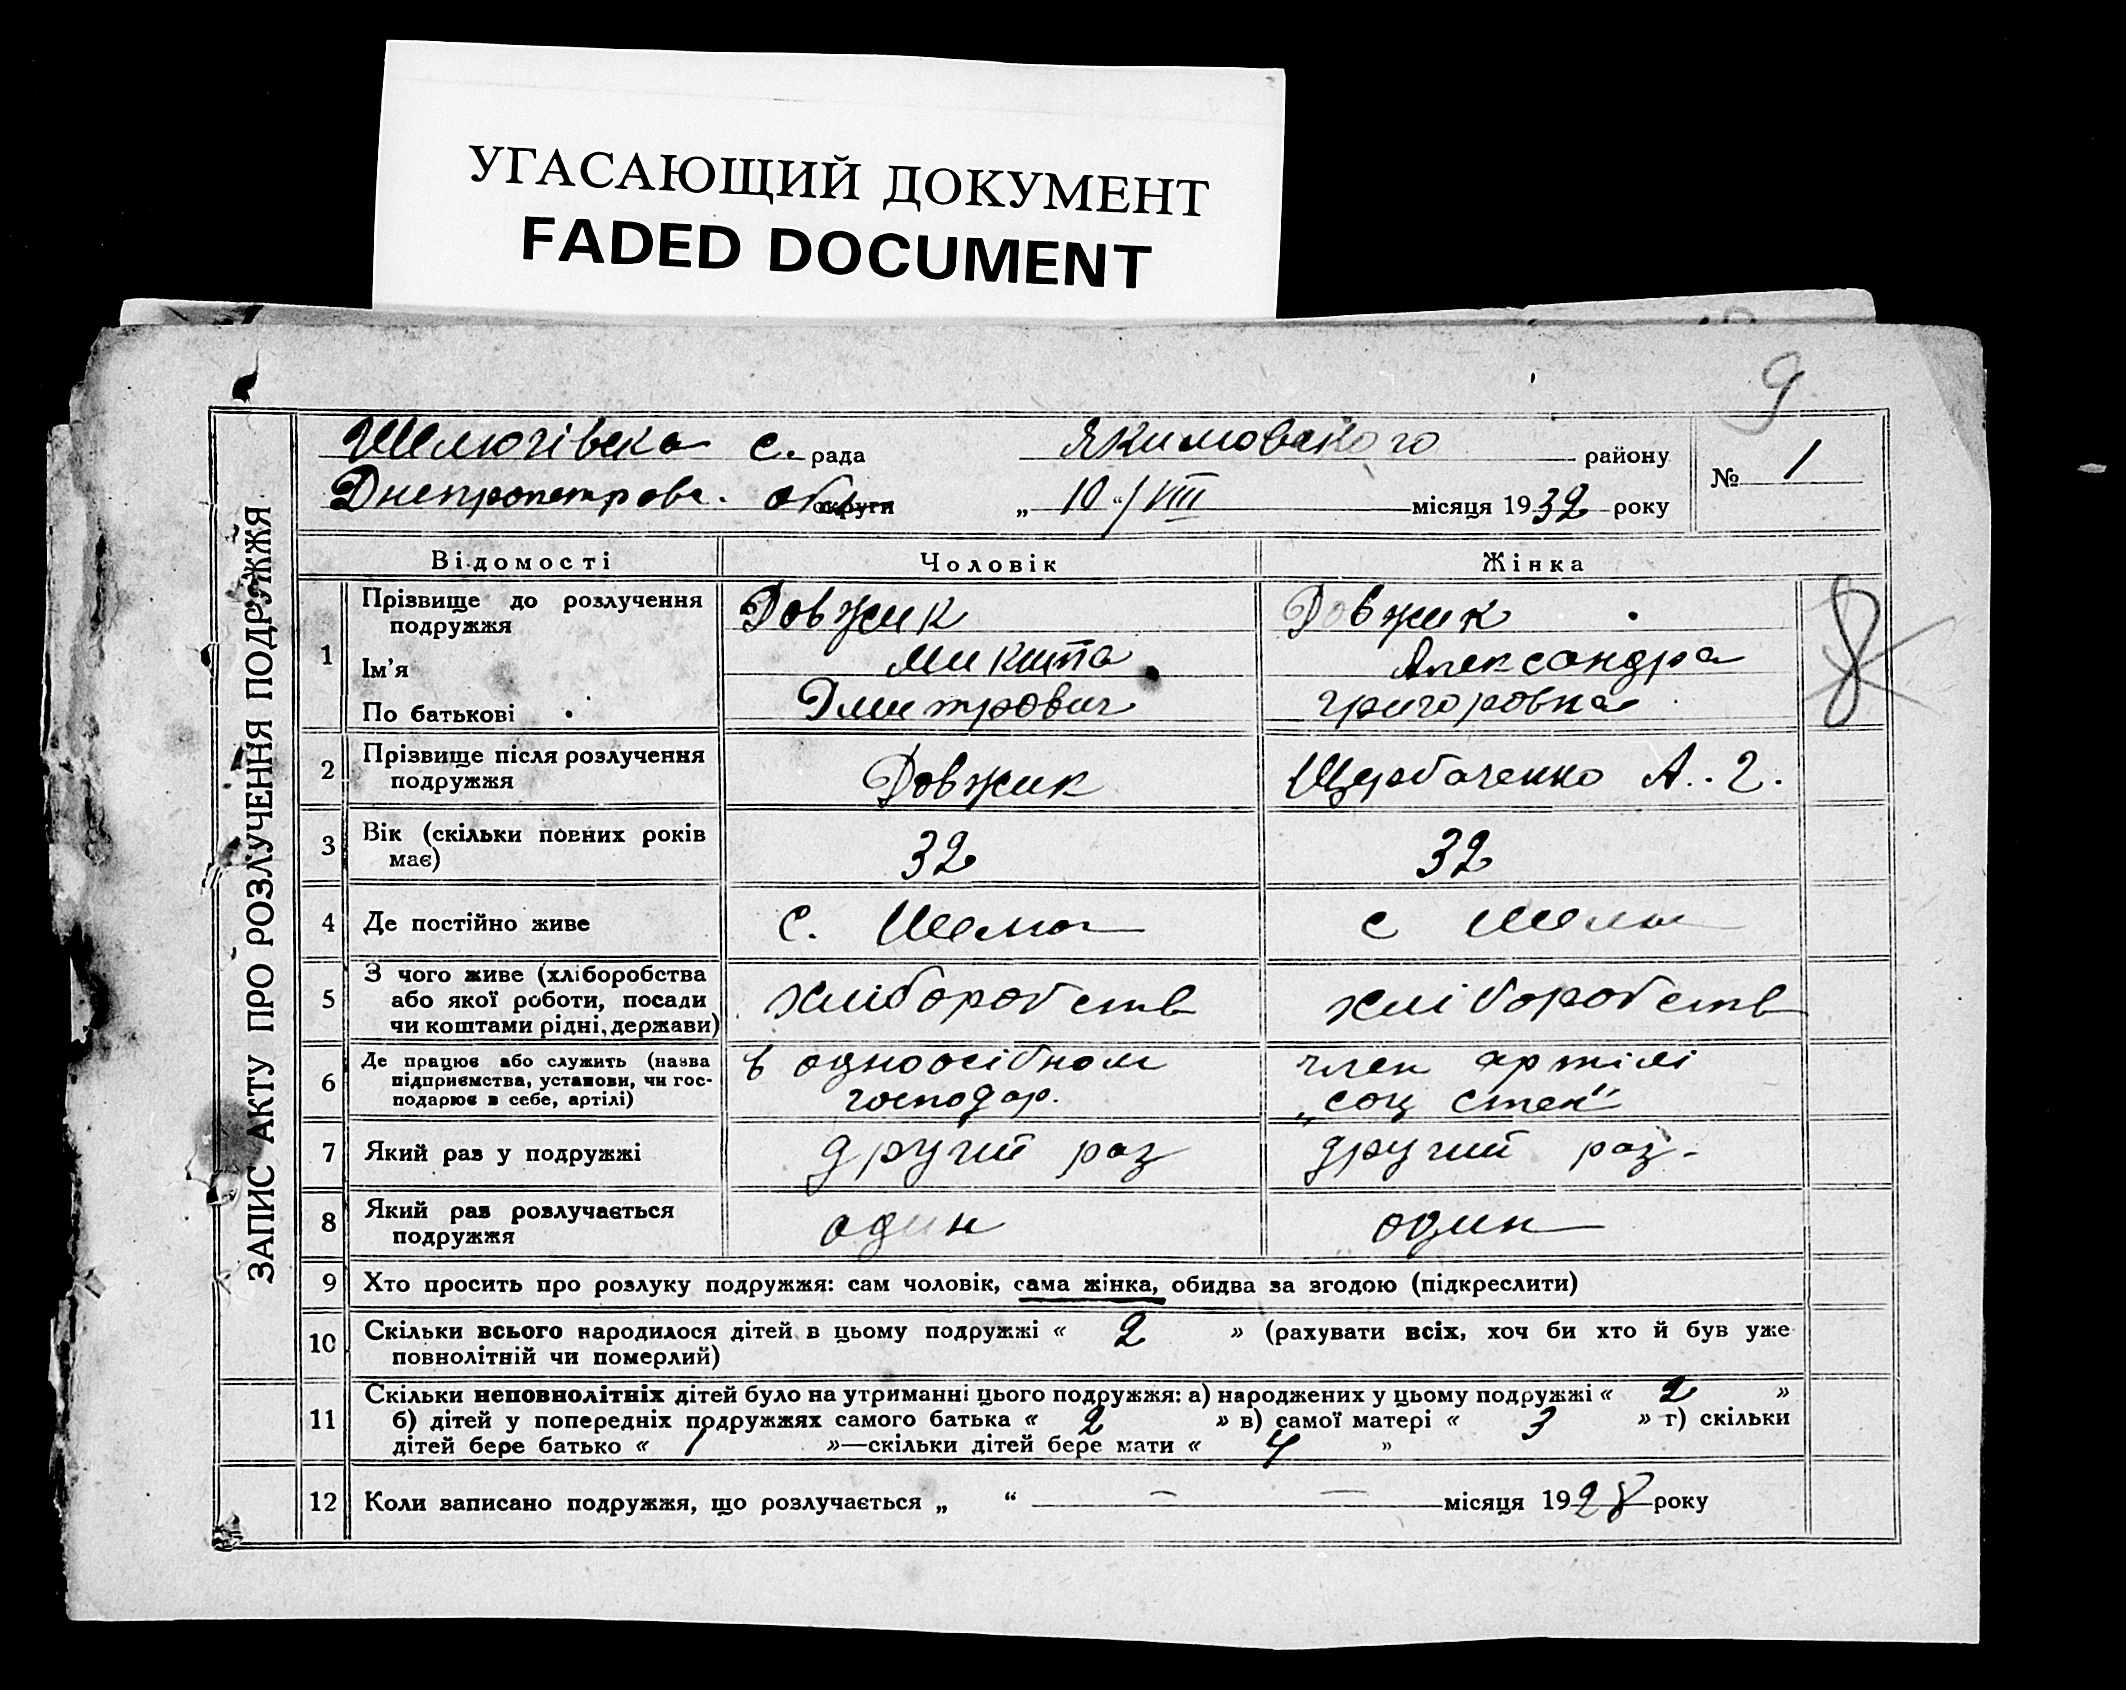 УГАСАЮЩИЙ ДОКУМЕНТ
FADED DOCUMENT
9
ЗАПИС АКТУ ПРО РОЗЛУЧЕННЯ ПОДРУЖЖЯ
Шелюгівска с. рада Якимовского району
№ 1
Днепропетровс. обл округи „ 10 “/VIII місяця 1932 року
Відомості Чоловік Жінка
1 Прізвище до розлучення подружжя Довжик Довжик
8
Ім'я Микита Александра
По батькові Дмитрович Григоровна
2 Прізвище після розлучення Довжик Щербаченко А. Г.
подружжя
3 Вік (скільки повних років 32 32
має)
4 Де постійно живе с. Шелюг с Шелюг
5 З чого живе (хліборобства
або якої роботи, посади хліборобств хліборобств
чи коштами рідні, держави)
6 Де працює або служить (назва в одноосібном член артілі
підприємства, установи, чи гос- господар. „соц степ“
подарює в себе, артілі)
7 Який раз у подружжі другий раз другий раз-
8 Який раз розлучається один один
подружжя
9 Хто просить про розлуку подружжя: сам чоловік, сама жінка, обидва за згодою (підкреслити)
10 Скільки всього народилося дітей в цьому подружжі « 2 » (рахувати всіх, хоч би хто й був уже
повнолітній чи померлий)
11 Скільки неповнолітніх дітей було на утриманні цього подружжя: а) народжених у цьому подружжі « 2 »
б) дітей у попередніх подружжях самого батька « 2 » в) самої матері « 3 » г) скільки
дітей бере батько « 1 »—скільки дітей бере мати « 4 »
12 Коли записано подружжя, що розлучається „ “ — — місяця 1928 року